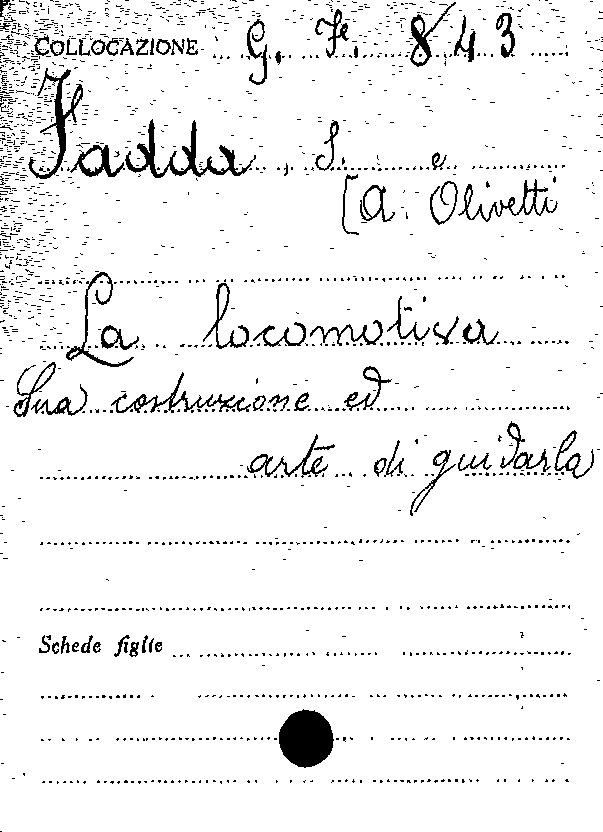 COLLOCAZIONE G. Fe. 843
Fadda, S. e
[A. Olivetti
La locomotiva
Sua costruzione ed
arte di guidarla
Schede figlie